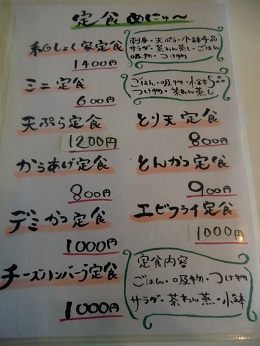 定食めにゅ〜
家定食
1400円
刺身・天ぷら・小鉢
サラダ・茶わん蒸し・ごはん
吸物・つけ物
ミニ定食
600円
ごはん・吸物・小鉢
つけ物・茶わん蒸し
天ぷら定食
1200円
とり天定食
800円
からあげ定食
800円
とんかつ定食
900円
デミかつ定食
1000円
エビフライ定食
1000円
チーズハンバーグ定食
1000円
定食内容
ごはん・吸物・つけ物
サラダ・茶わん蒸・小鉢